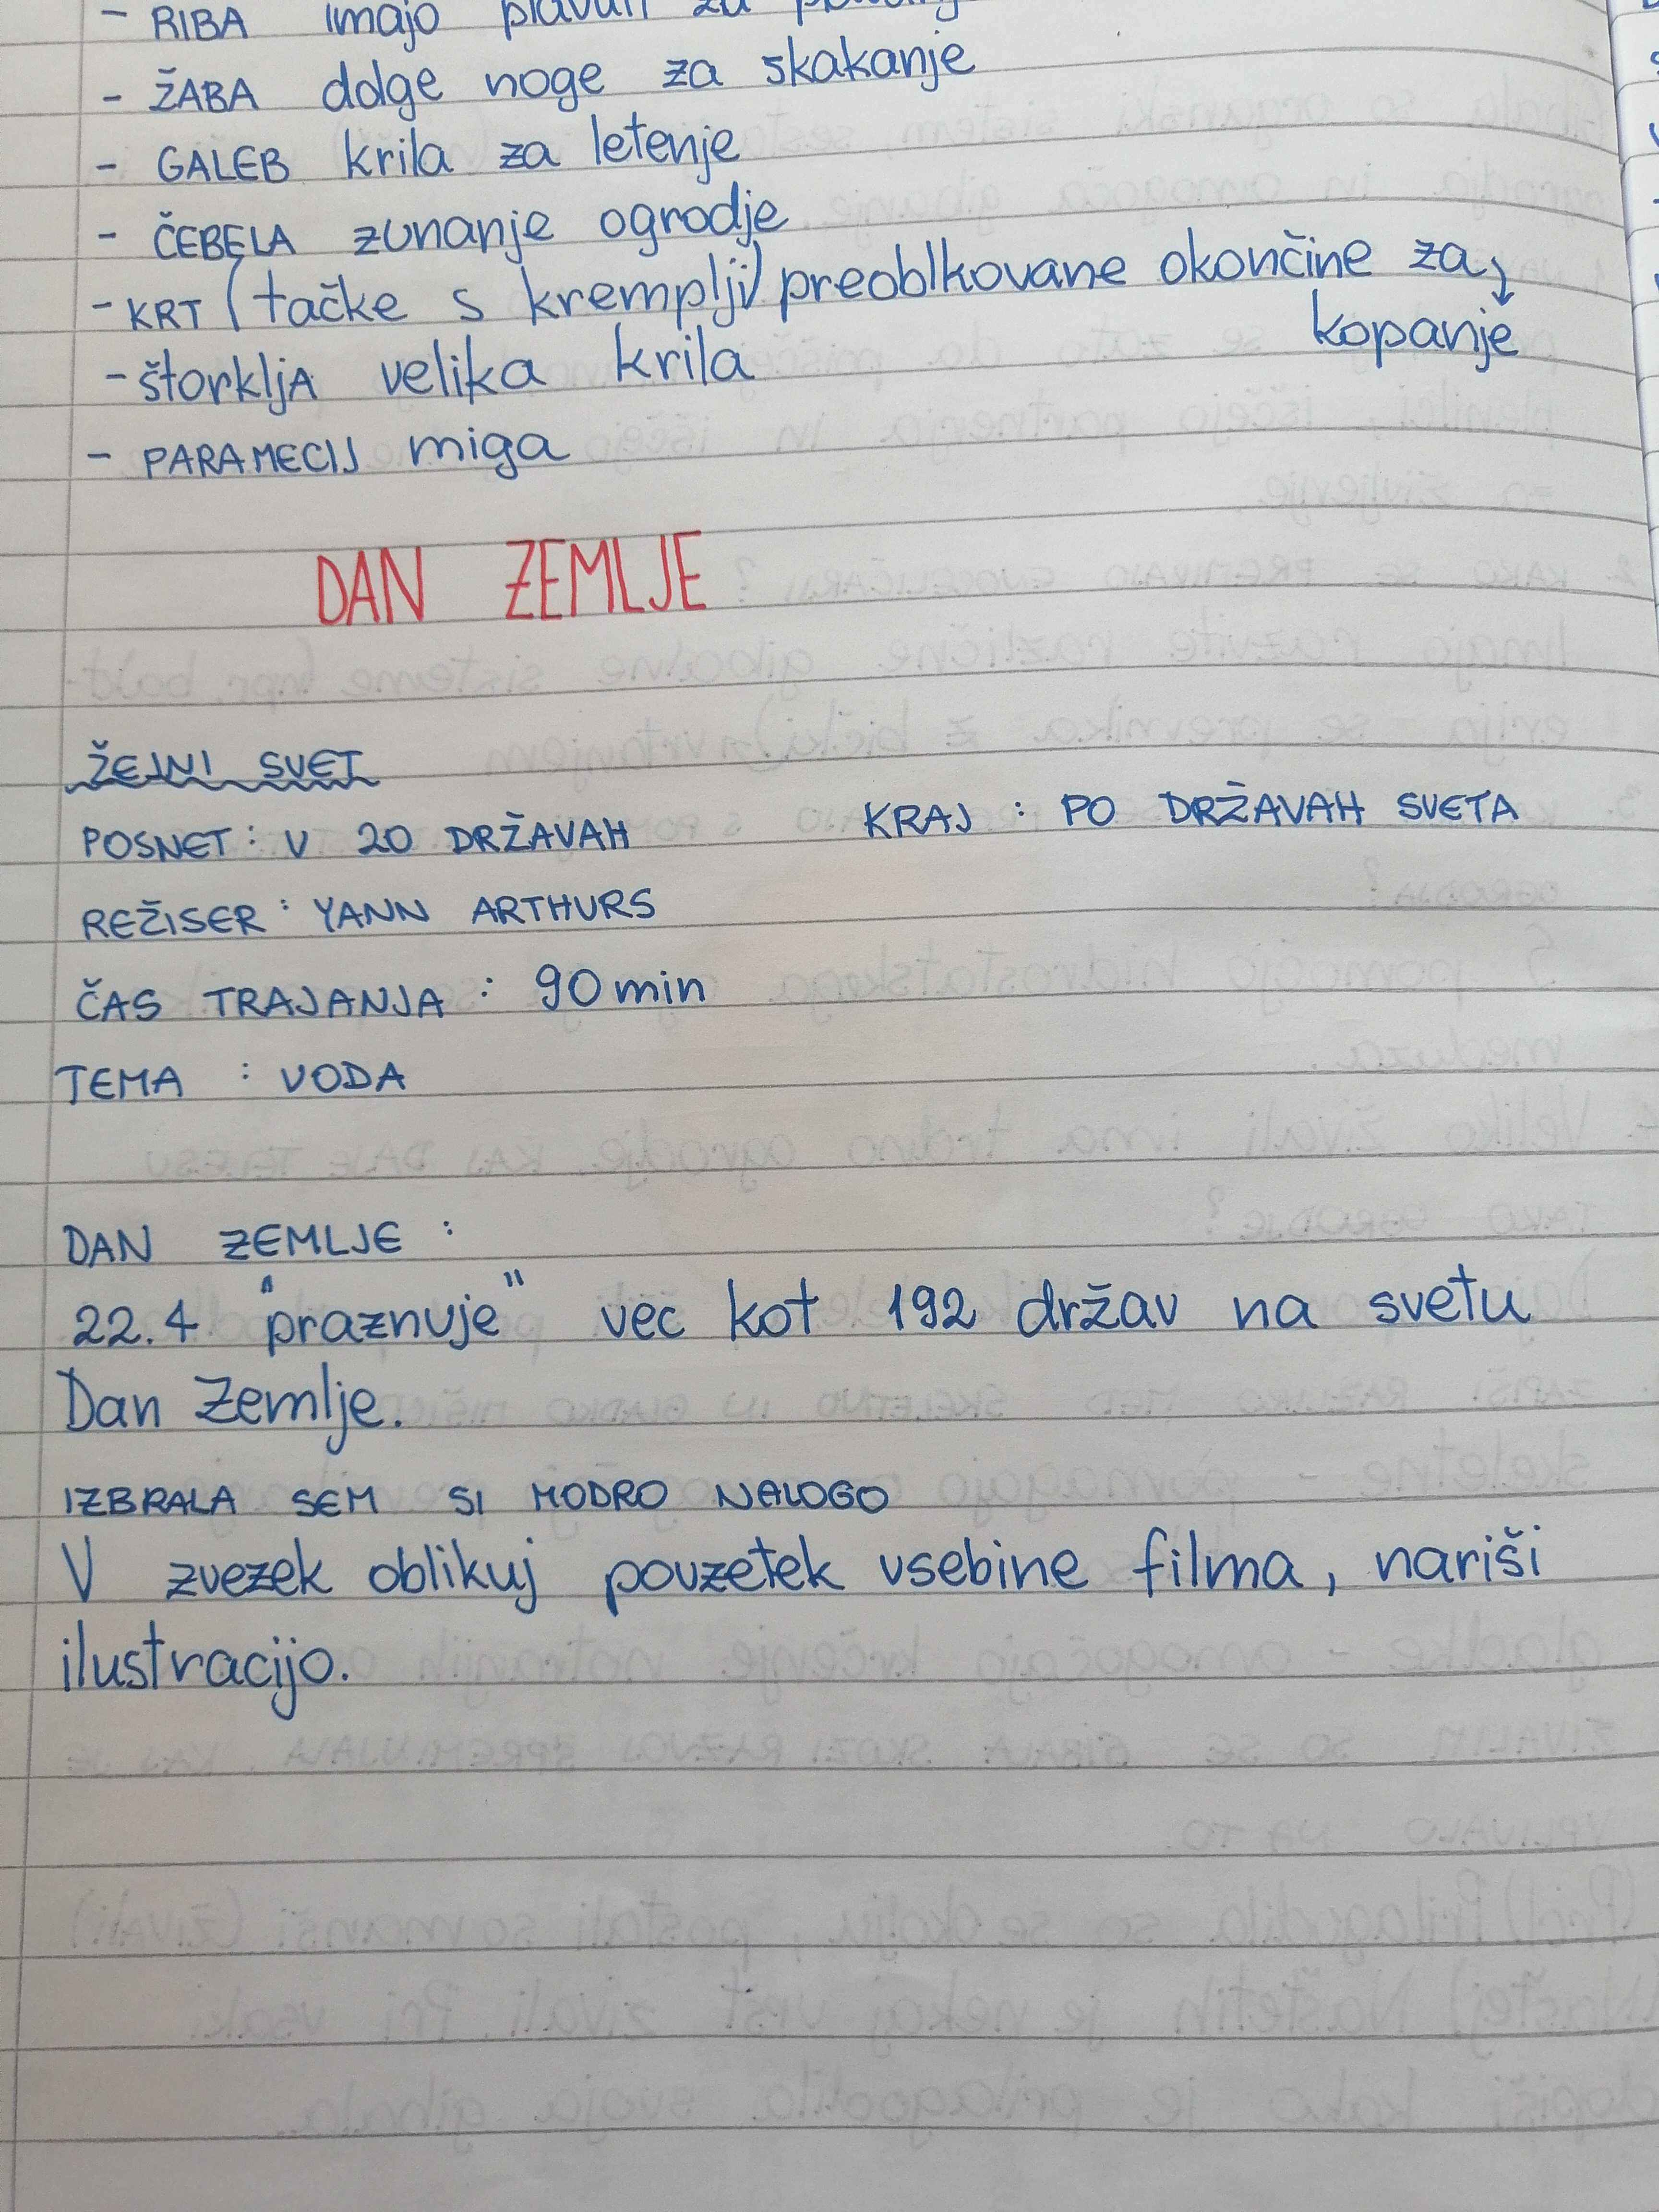 - RIBA imajo plavuti za
- ŽABA dolge noge za skakanje
- GALEB krila za letenje
- ČEBELA zunanje ogrodje
- KRT (tačke s kremplji) preoblkovane okončine za
kopanje
- štorkljA velika krila
- PARAMECIJ miga
DAN ZEMLJE
ŽEJNI SVET
POSNET: V 20 DRŽAVAH KRAJ : PO DRŽAVAH SVETA
REŽISER : YANN ARTHURS
ČAS TRAJANJA : 90 min
TEMA : VODA
DAN ZEMLJE :
22.4 "praznuje" vec kot 192 držav na svetu
Dan Zemlje.
IZBRALA SEM SI MODRO NALOGO
V zvezek oblikuj povzetek vsebine filma, nariši
ilustracijo.